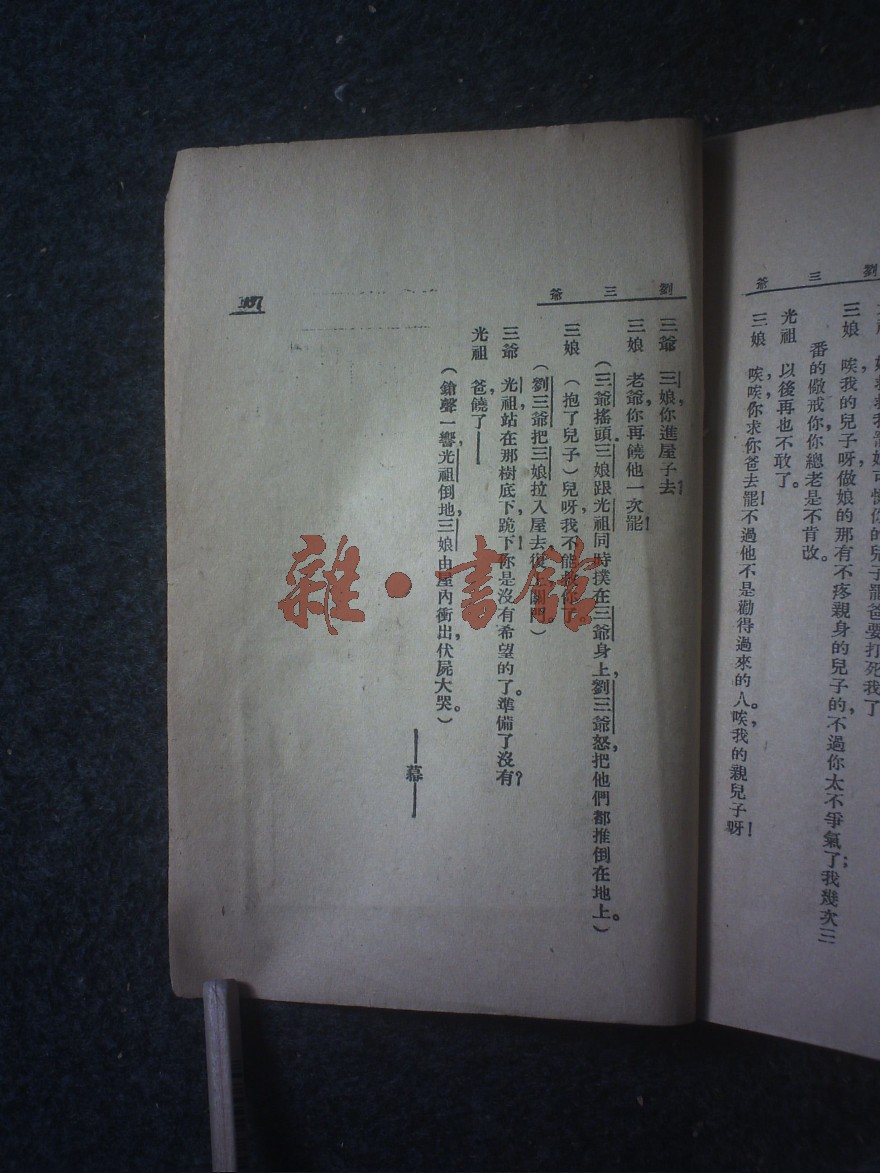 劉三爺
三娘
唉，我的兒子呀，做娘的那有不疼親身的兒子的，不過你太不爭氣了；我幾次三
番的儆戒你，你總老是不肯改。
光祖 以後再也不敢了。
三娘 唉，唉，你求你爸去罷！不過他不是勸得過來的人。唉，我的親兒子呀！
劉三爺
三爺 三娘，你進屋子去！
三娘 老爺，你再饒他一次罷！
（三爺搖頭。三娘跟光祖同時撲在三爺身上，劉三爺怒，把他們都推倒在地上。）
三娘 （抱了兒子）兒呀，我不能救你了。
（劉三爺把三娘拉入屋去，復上關門）
三爺 光祖，站在那樹底下，跪下！你是沒有希望的了。準備了沒有？
光祖 爸，饒了——
（鎗聲一響，光祖倒地，三娘由屋內衝出，伏屍大哭。）
——幕——
雜·書館